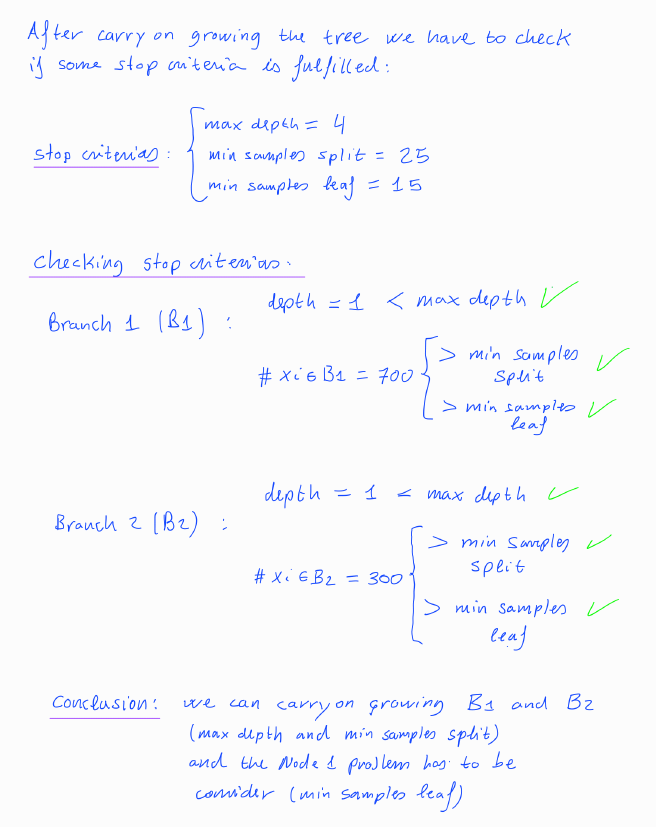 After carry on growing the tree we have to check
if some stop criteria is fulfilled:
stop criterias: max depth = 4
min samples split = 25
min samples leaf = 15
Checking stop criterias.
Branch 1 (B1) : depth = 1 < max depth ✓
# xi ∈ B1 = 700 > min samples ✓
split
> min samples ✓
leaf
Branch 2 (B2) : depth = 1 < max depth ✓
# xi ∈ B2 = 300 > min samples ✓
split
> min samples ✓
leaf
Conclusion: we can carry on growing B1 and B2
(max depth and min samples split)
and the Node 1 problem has to be
consider (min samples leaf)